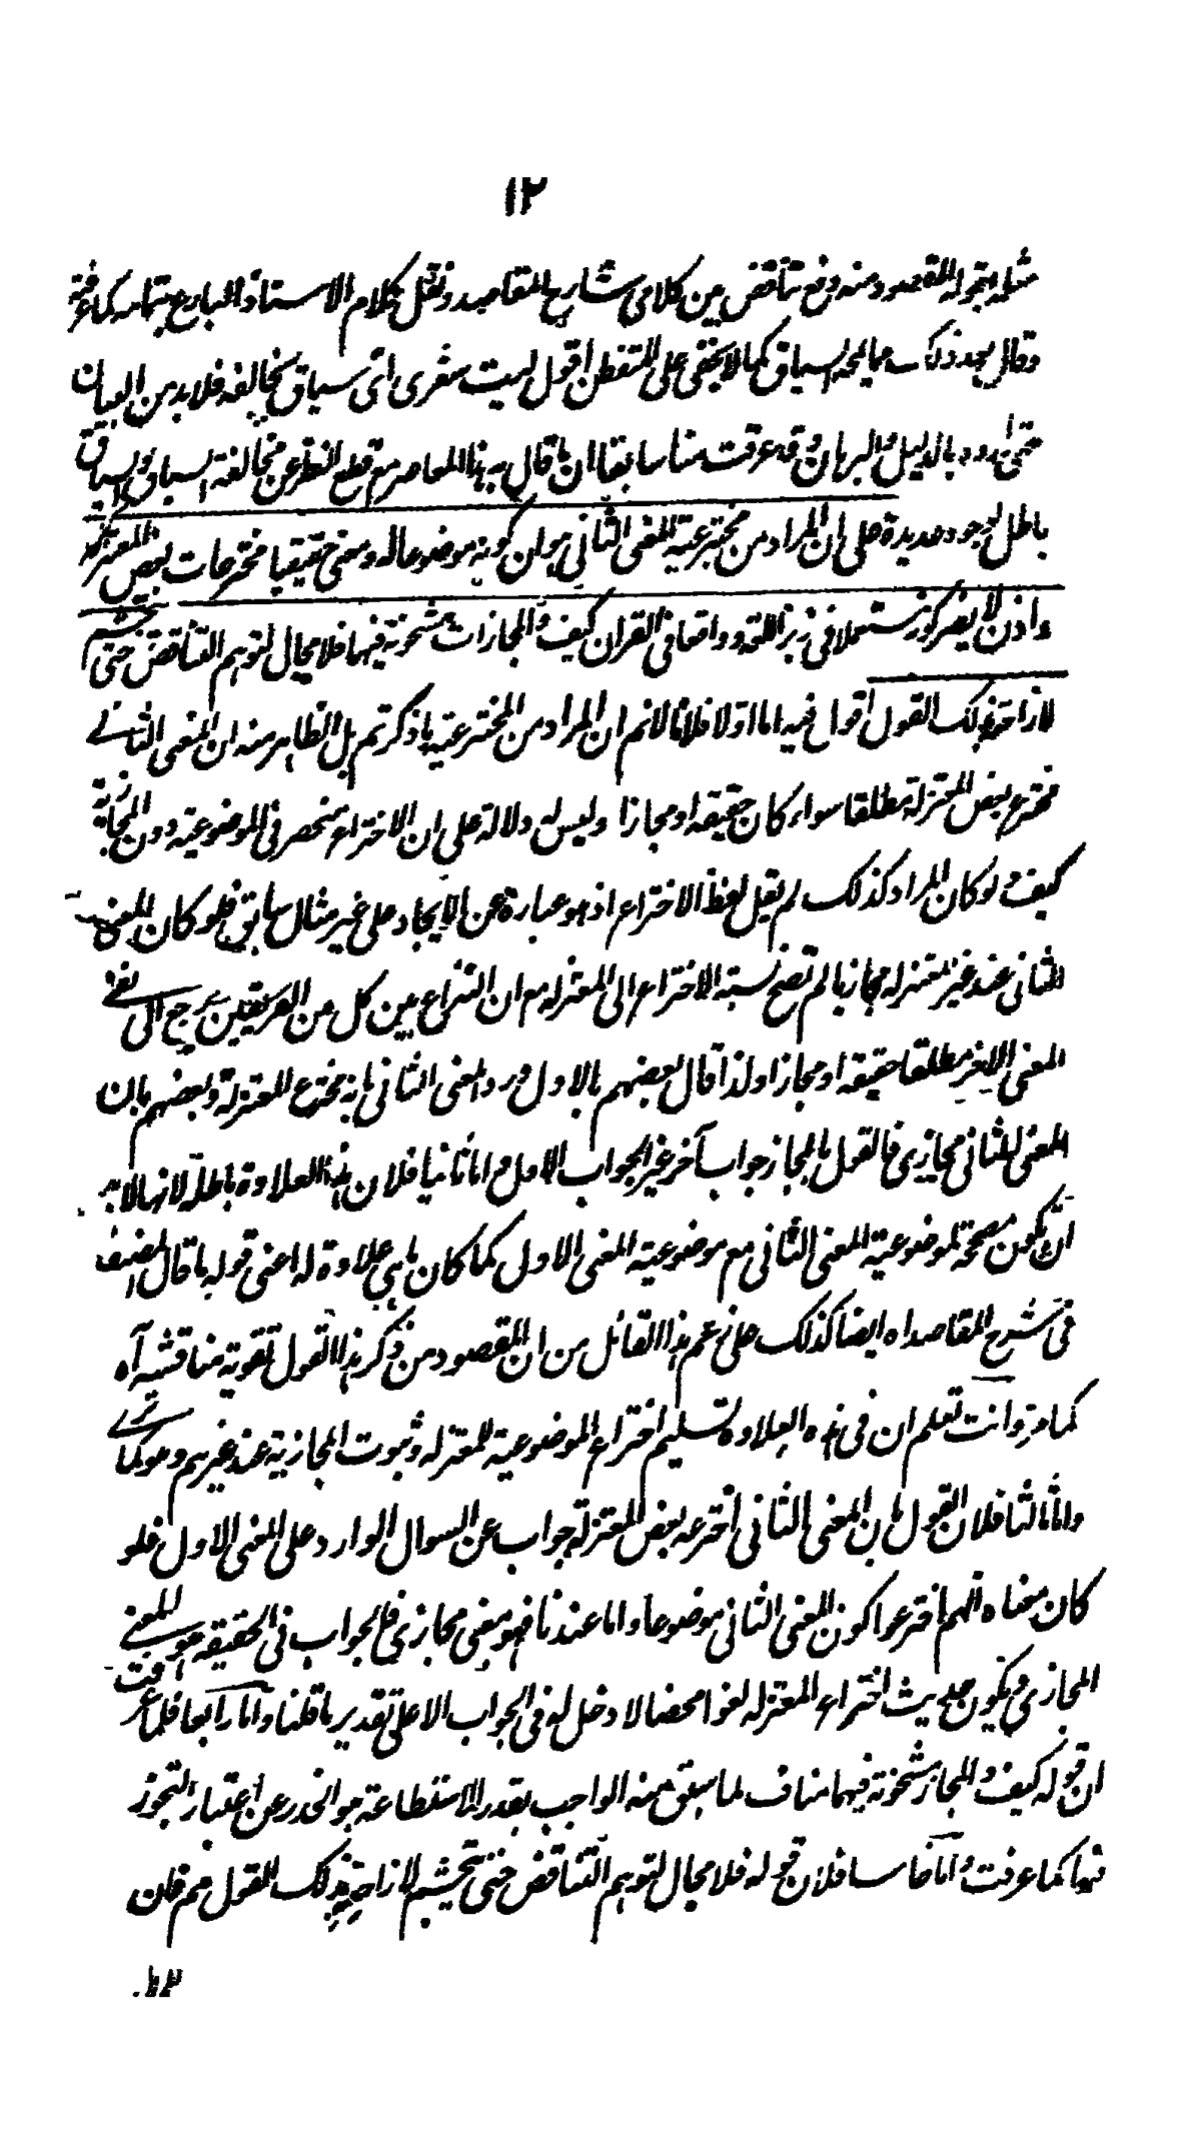 ١٢
مثيله بقوله المقصود منه دفع تناقض بين كلامى شارح المقاصد ونقل كلام الاستاذ البارع بتمامه كما عرفته
وقال بعد ذلك مما يمجه السياق كما لا يخفى على المتفطن اقول ليت شعرى اىّ سياق يخالفه فلا بد من البيان
حتى بالدليل والبرهان وقد عرفت منا سابقا ان ما قال به هذا المعاصر مع قطع النظر عن مخالفة السباق والسياق
باطل بوجوه عديدة على ان المراد من مخترعية المعنى الثانى هو ان كونه موضوعا له ومعنى حقيقيا مخترعات بعض المعتزلة
واذن لا يضر كونه مستعملا فى زبر اللغة وواقعا فى القران كيف والمجازات مشحونة فيها فلا مجال لتوهم التناقض حتى يتجشم
لازاحته بذلك القول اقول فيه اما اولا فلانا لا نم ان المراد من المخترعية ما ذكرتم بل الظاهر منه ان المعنى الثانى
مخترع بعض المعتزلة مطلقا سواء كان حقيقة او مجازا وليس له دلالة على ان الاختراع منحصر فى الموضوعية دون المجازية
كيف ولو كان المراد كذلك لم يقل لفظ الاختراع اذ هو عبارة عن الايجاد على غير مثال سابق فلو كان المعنى
الثانى عند غير المعتزلة مجازيا لم تصح نسبة الاختراع الى المعتزلة مع ان النزاع بين كل من الفريقين يرجع الى نفى
المعنى الاخر مطلقا حقيقة او مجازا ولذا قال بعضهم بالاول ورد المعنى الثانى بانه مخترع للمعتزلة وبعضهم بان
المعنى الثانى مجازى فالقول بالمجاز جواب آخر غير الجواب الاول واما ثانيا فلان هذه العلاوة باطلة لانها لا بد
ان تكون مصححة لموضوعية المعنى الثانى مع موضوعية المعنى الاول كما كان ما هى علاوة له اعنى قوله ما قال المصنف
فى شرح المقاصد اه ايضا كذلك على زعم هذا القائل من ان المقصود من ذكر هذا القول تقوية مناقشه آه
كما مر وانت تعلم ان فى هذه العلاوة تسليم اختراع الموضوعية للمعتزلة وثبوت المجازية عند غيرهم وهو كما ترى
واما ثالثا فلان القول بان المعنى الثانى اخترعه بعض المعتزلة جواب عن السوال الوارد على المعنى الاول فلو
كان معناه انهم اخترعوا كون المعنى الثانى موضوعا واما عندنا فهو معنى مجازى فالجواب فى الحقيقة هو المعنى
المجازى ويكون حديث اختراع المعتزلة لغوا محضا لا دخل له فى الجواب الا على تقدير ما قلنا واما رابعا فلما عرفت
ان قوله كيف والمجاز مشحونة فيها مناف لما سبق منه الواجب بقدر الاستطاعة هو الحذر عن اعتبار التجوز
فيها كما عرفت واما خامسا فلان قوله فلا مجال لتوهم التناقض حتى يتجشم لازاحته بذلك القول مم فان
١٢